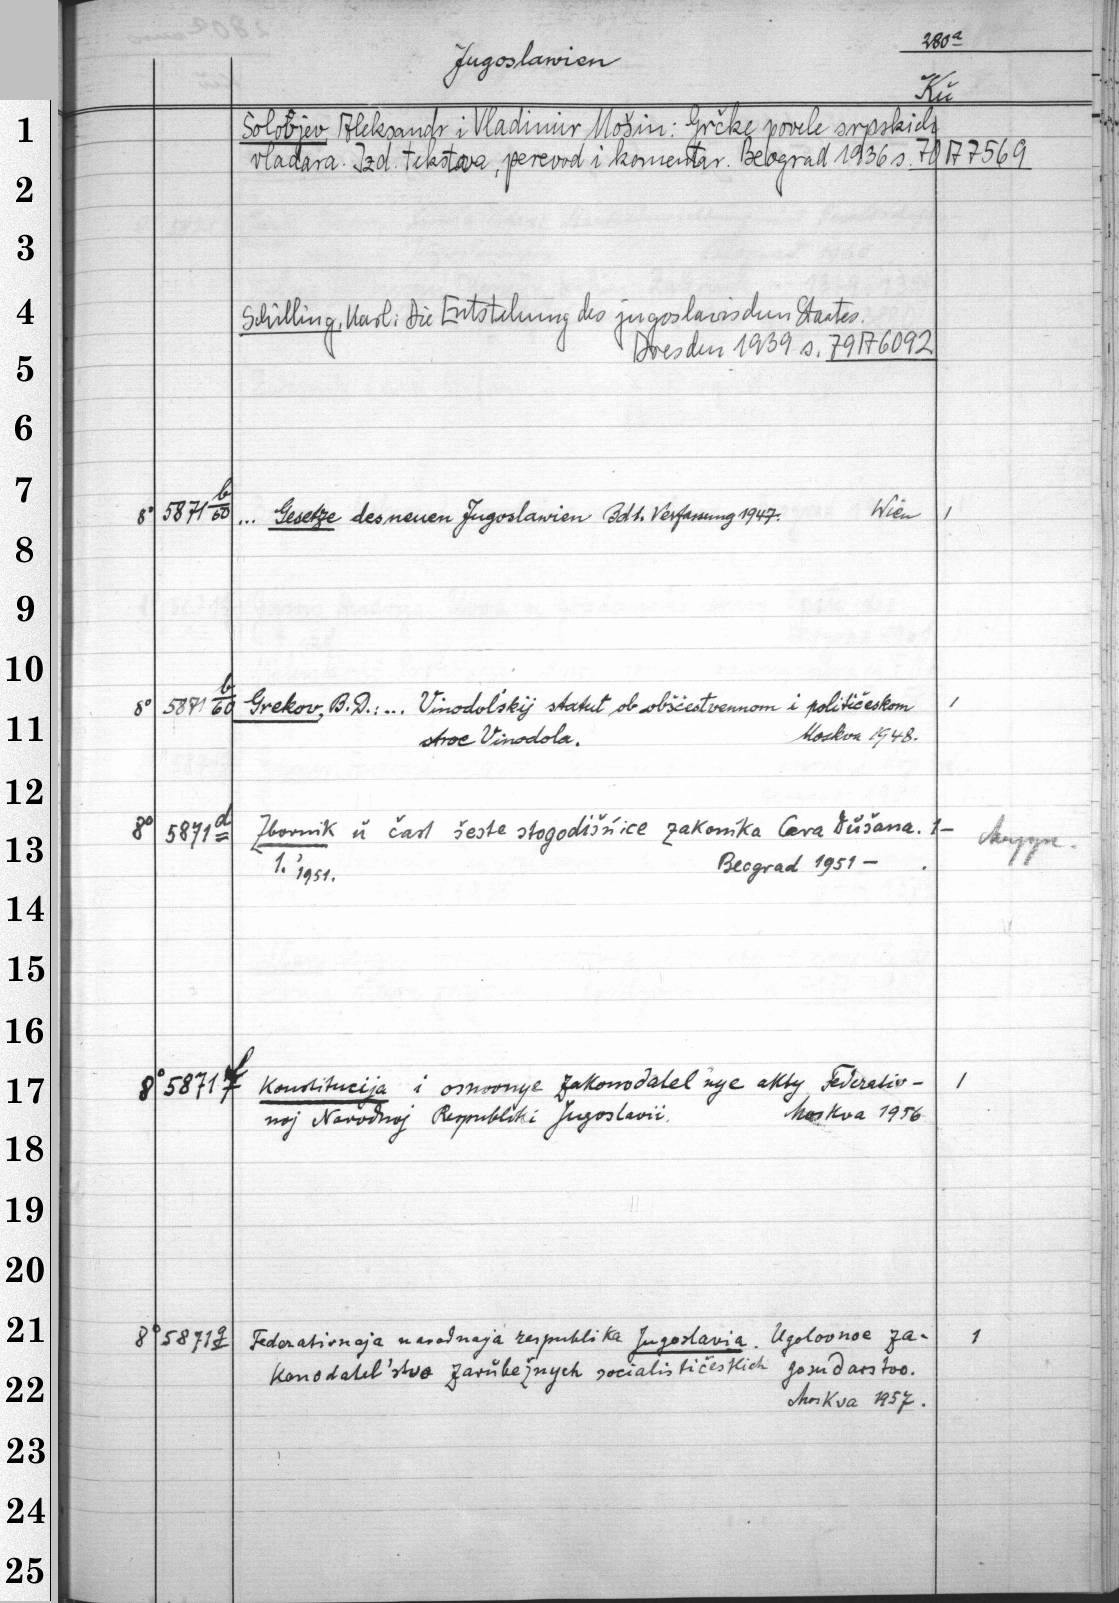 280a
Jugoslawien
Kü
1
Solovjev Aleksandr i Vladimir Mošin: Grčke povele srpskich
vladara. Izd. tekstova, perevod i komentar. Beograd 1936 s. 70 A 7569
2
3
4
Schilling, Karl: Die Entstehung des jugoslavischen Staates.
Dresden 1939 s. 79 A 6092
5
6
7
8° 5871 b/60 ... Gesetze des neuen Jugoslawien Bd 1. Verfassung 1947. Wien 1
8
9
10
8° 5871 b/60 Grekov, B.D.: ... Vinodol'skij statut ob obščestvennom i političeskom 1
11
stroe Vinodola. Moskva 1948.
12
8° 5871 d Zbornik u čast šeste stogodišnice zakonika Cara Dušana. 1–
13
1. 1951. Beograd 1951 –
14
15
16
17
8° 5871 f Konstitucija i osnovnye zakonodatel'nye akty Federativ- 1
noj Narodnoj Respubliki Jugoslavii. Moskva 1956
18
19
20
21
8° 5871 g Federativnaja narodnaja respublika Jugoslavia. Ugolovnoe za- 1
konodatel'stvo zarubežnych socialističeskich gosudarstvo.
22
Moskva 1957.
23
24
25